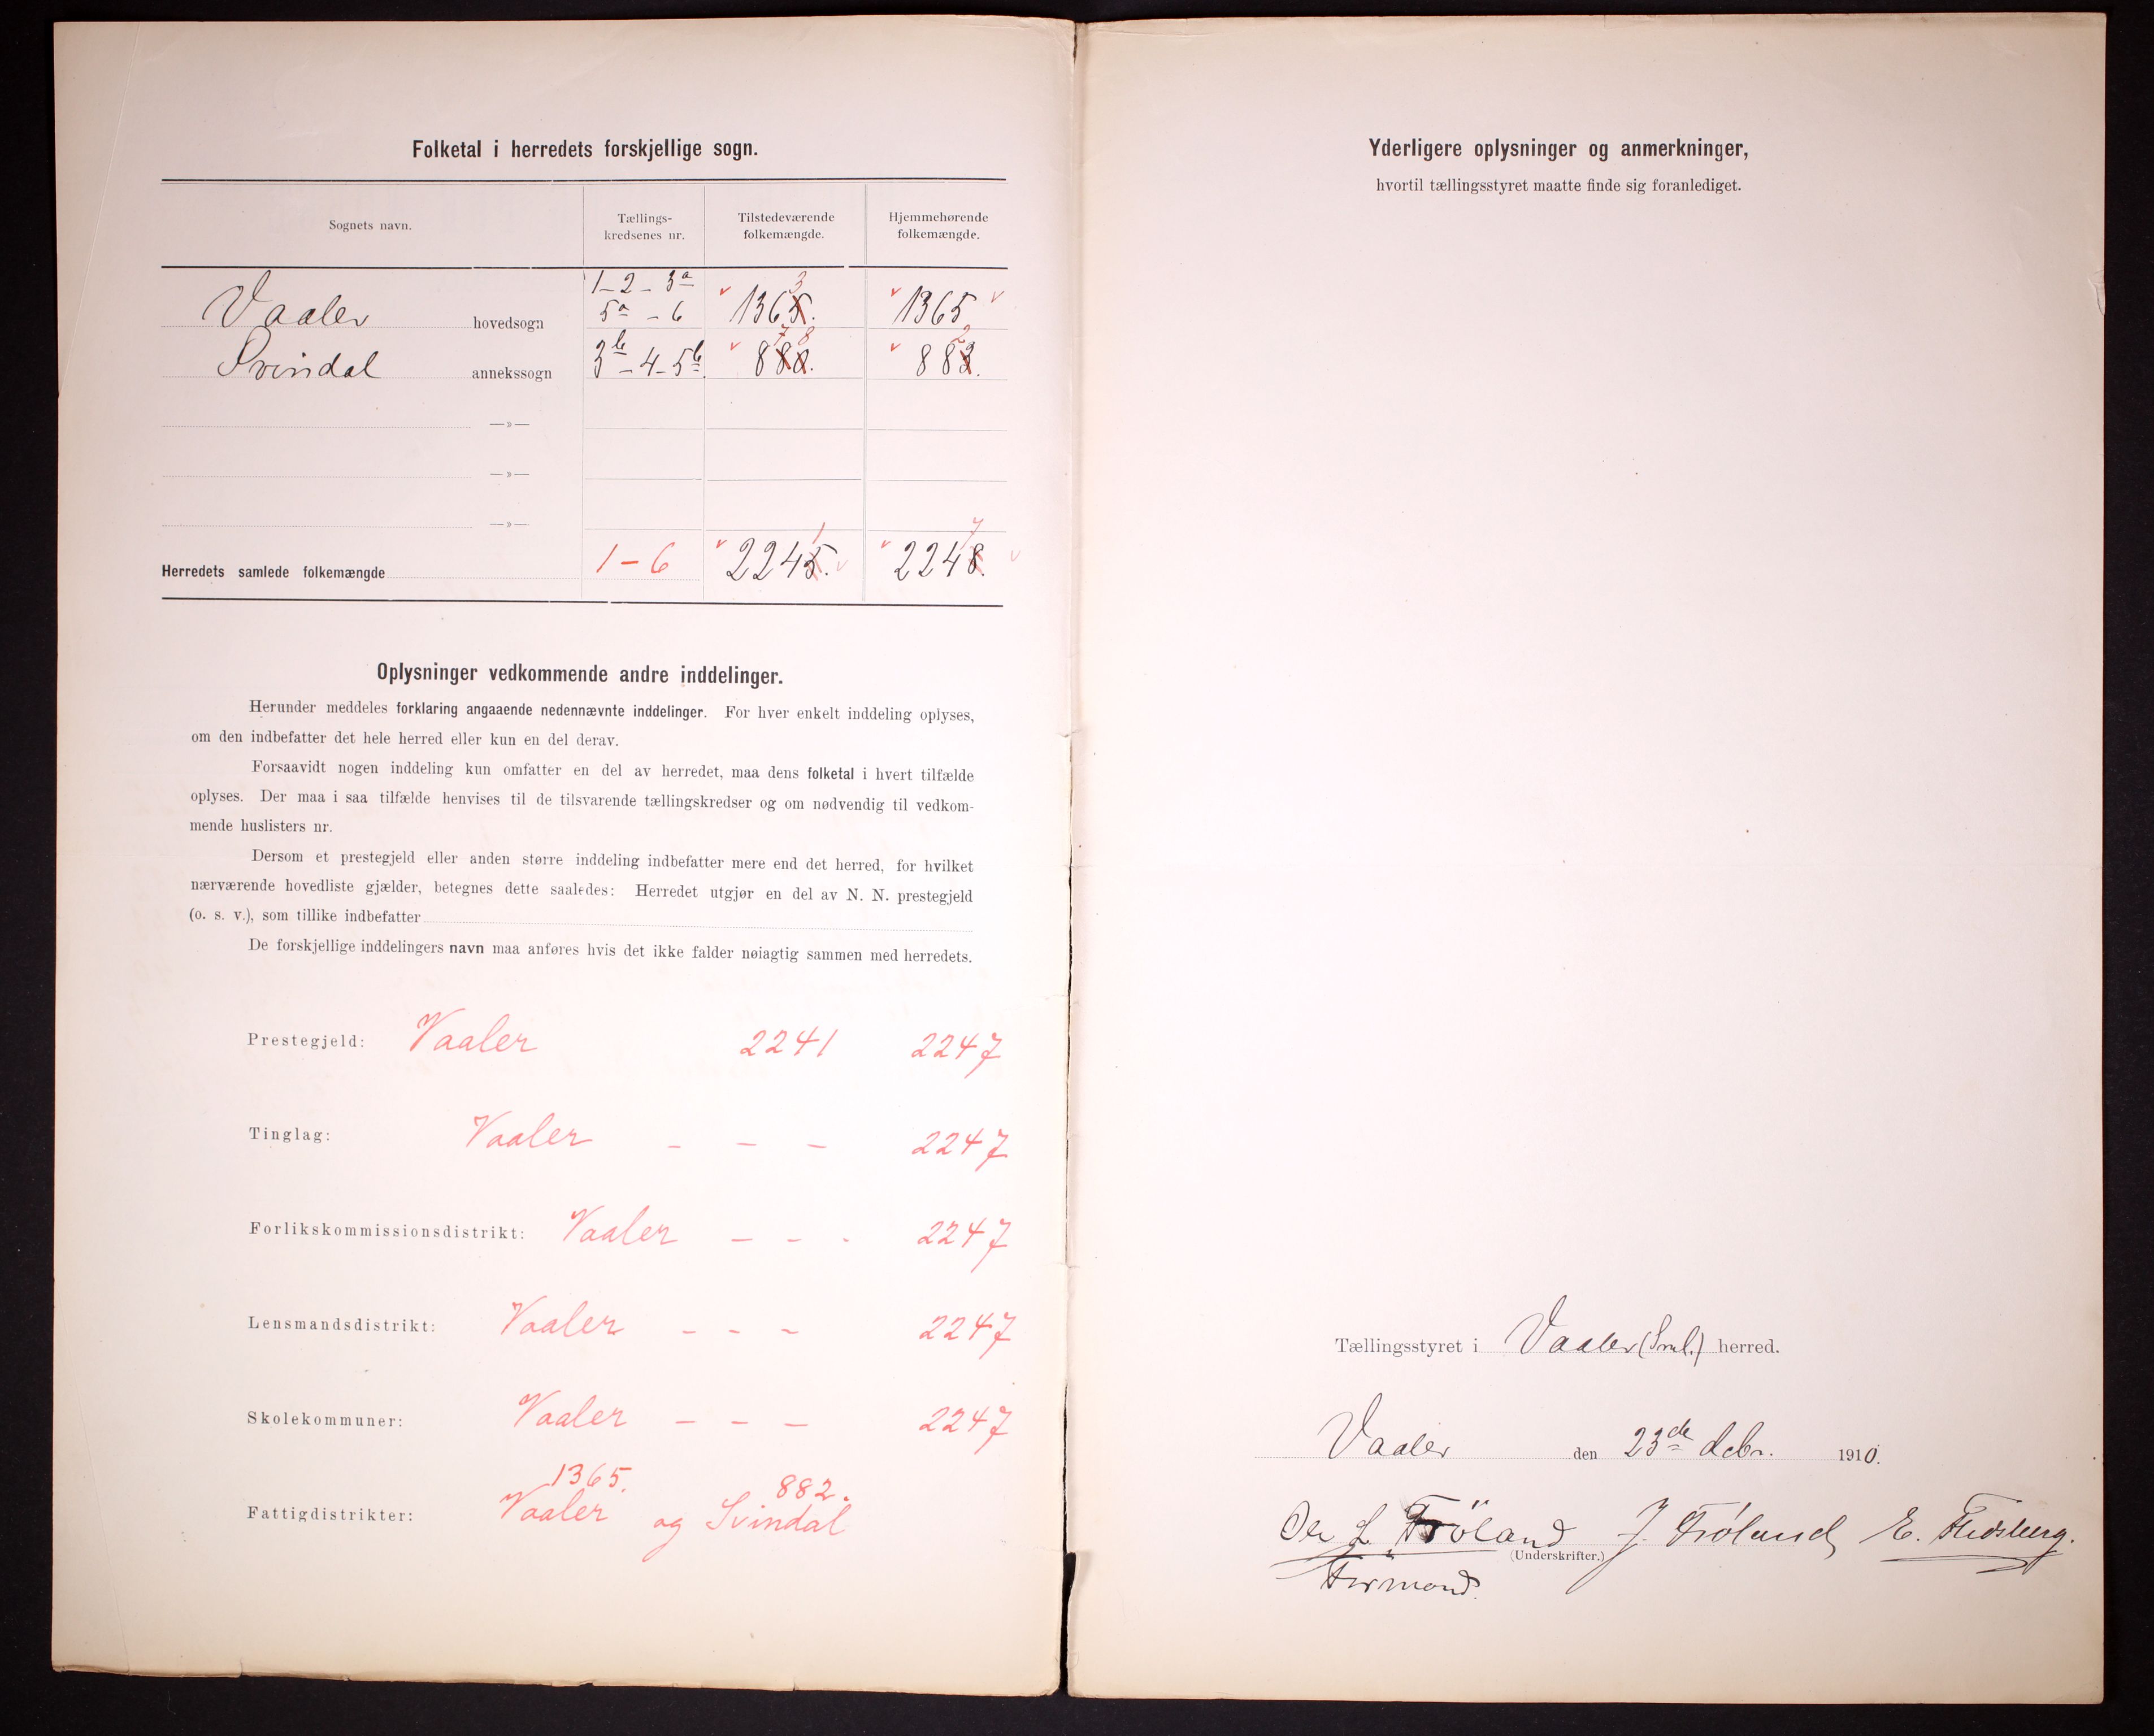 Folketal i herredets forskjellige sogn.
Sognets navn. Tællings-kredsenes nr. Tilstedeværende folkemængde. Hjemmehørende folkemængde.
1 - 2 - 3a 3
Vaaler hovedsogn 5a - 6 v 1365. v 1365 v
7 8 2
Svindal annekssogn 3b - 4 - 5b v 880. v 883.
—»—
—»—
—»—
1 7
Herredets samlede folkemængde 1 - 6 v 2245. v v 2248. v
Oplysninger vedkommende andre inddelinger.
Herunder meddeles forklaring angaaende nedennævnte inddelinger. For hver enkelt inddeling oplyses,
om den indbefatter det hele herred eller kun en del derav.
Forsaavidt nogen inddeling kun omfatter en del av herredet, maa dens folketal i hvert tilfælde
oplyses. Der maa i saa tilfælde henvises til de tilsvarende tællingskredser og om nødvendig til vedkom-
mende huslisters nr.
Dersom et prestegjeld eller anden større inddeling indbefatter mere end det herred, for hvilket
nærværende hovedliste gjælder, betegnes dette saaledes: Herredet utgjør en del av N. N. prestegjeld
(o. s. v.), som tillike indbefatter
De forskjellige inddelingers navn maa anføres hvis det ikke falder nøiagtig sammen med herredets.
Prestegjeld: Vaaler 2241 2247
Tinglag: Vaaler - - - 2247
Forlikskommissionsdistrikt: Vaaler - - - 2247
Lensmandsdistrikt: Vaaler - - - 2247
Skolekommuner: Vaaler - - - 2247
1365. 882.
Fattigdistrikter: Vaaler og Svindal
Yderligere oplysninger og anmerkninger,
hvortil tællingsstyret maatte finde sig foranlediget.
Tællingsstyret i Vaaler (Sml.) herred.
Vaaler den 23de debr. 1910.
Ole L. Fröland J. Fröland E.
(Underskrifter.)
Formand.